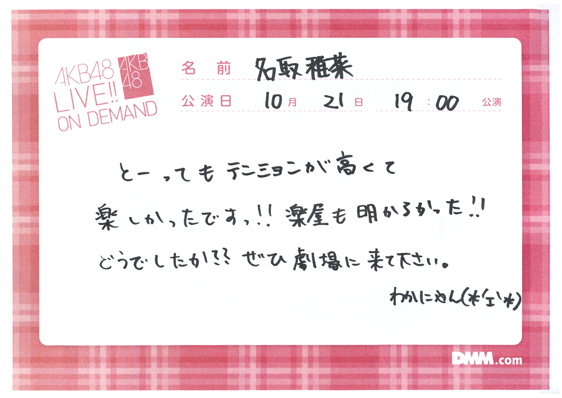 AKB48
LIVE!!
ON DEMAND
AKB
48
名 前 名取稚菜
公演日 10月 21日 19:00 公演
とーっても テンションが高くて
楽しかったですっ!! 楽屋も明かるかった!!
どうでしたか?? ぜひ劇場に来て下さい。
わかにゃん(*'ェ'*)
DMM.com